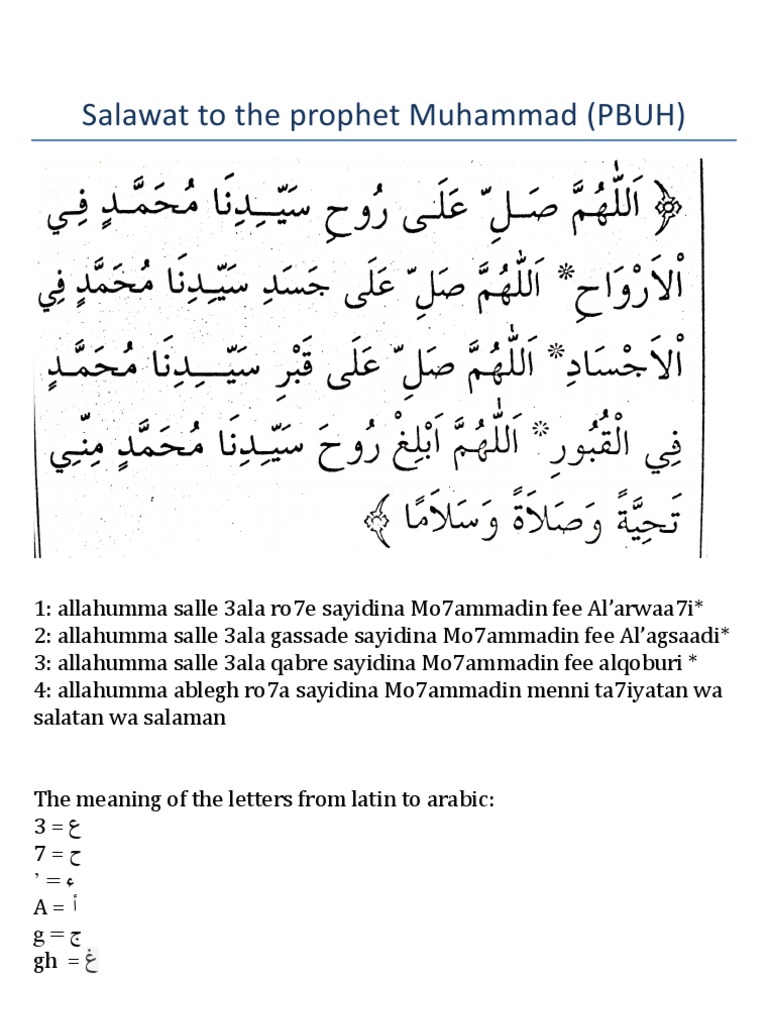 Salawat to the prophet Muhammad (PBUH)
﴿ اَللّٰهُمَّ صَلِّ عَلَى رُوحِ سَيِّدِنَا مُحَمَّدٍ فِي
اْلاَرْوَاحِ * اَللّٰهُمَّ صَلِّ عَلَى جَسَدِ سَيِّدِنَا مُحَمَّدٍ فِي
اْلاَجْسَادِ * اَللّٰهُمَّ صَلِّ عَلَى قَبْرِ سَيِّدِنَا مُحَمَّدٍ
فِي الْقُبُورِ * اَللّٰهُمَّ اَبْلِغْ رُوحَ سَيِّدِنَا مُحَمَّدٍ مِنِّي
تَحِيَّةً وَصَلاَةً وَسَلاَمًا ﴾
1: allahumma salle 3ala ro7e sayidina Mo7ammadin fee Al’arwaa7i*
2: allahumma salle 3ala gassade sayidina Mo7ammadin fee Al’agsaadi*
3: allahumma salle 3ala qabre sayidina Mo7ammadin fee alqoburi *
4: allahumma ablegh ro7a sayidina Mo7ammadin menni ta7iyatan wa
salatan wa salaman
The meaning of the letters from latin to arabic:
3 = ع
7 = ح
’ = ء
A = أ
g = ج
gh = غ